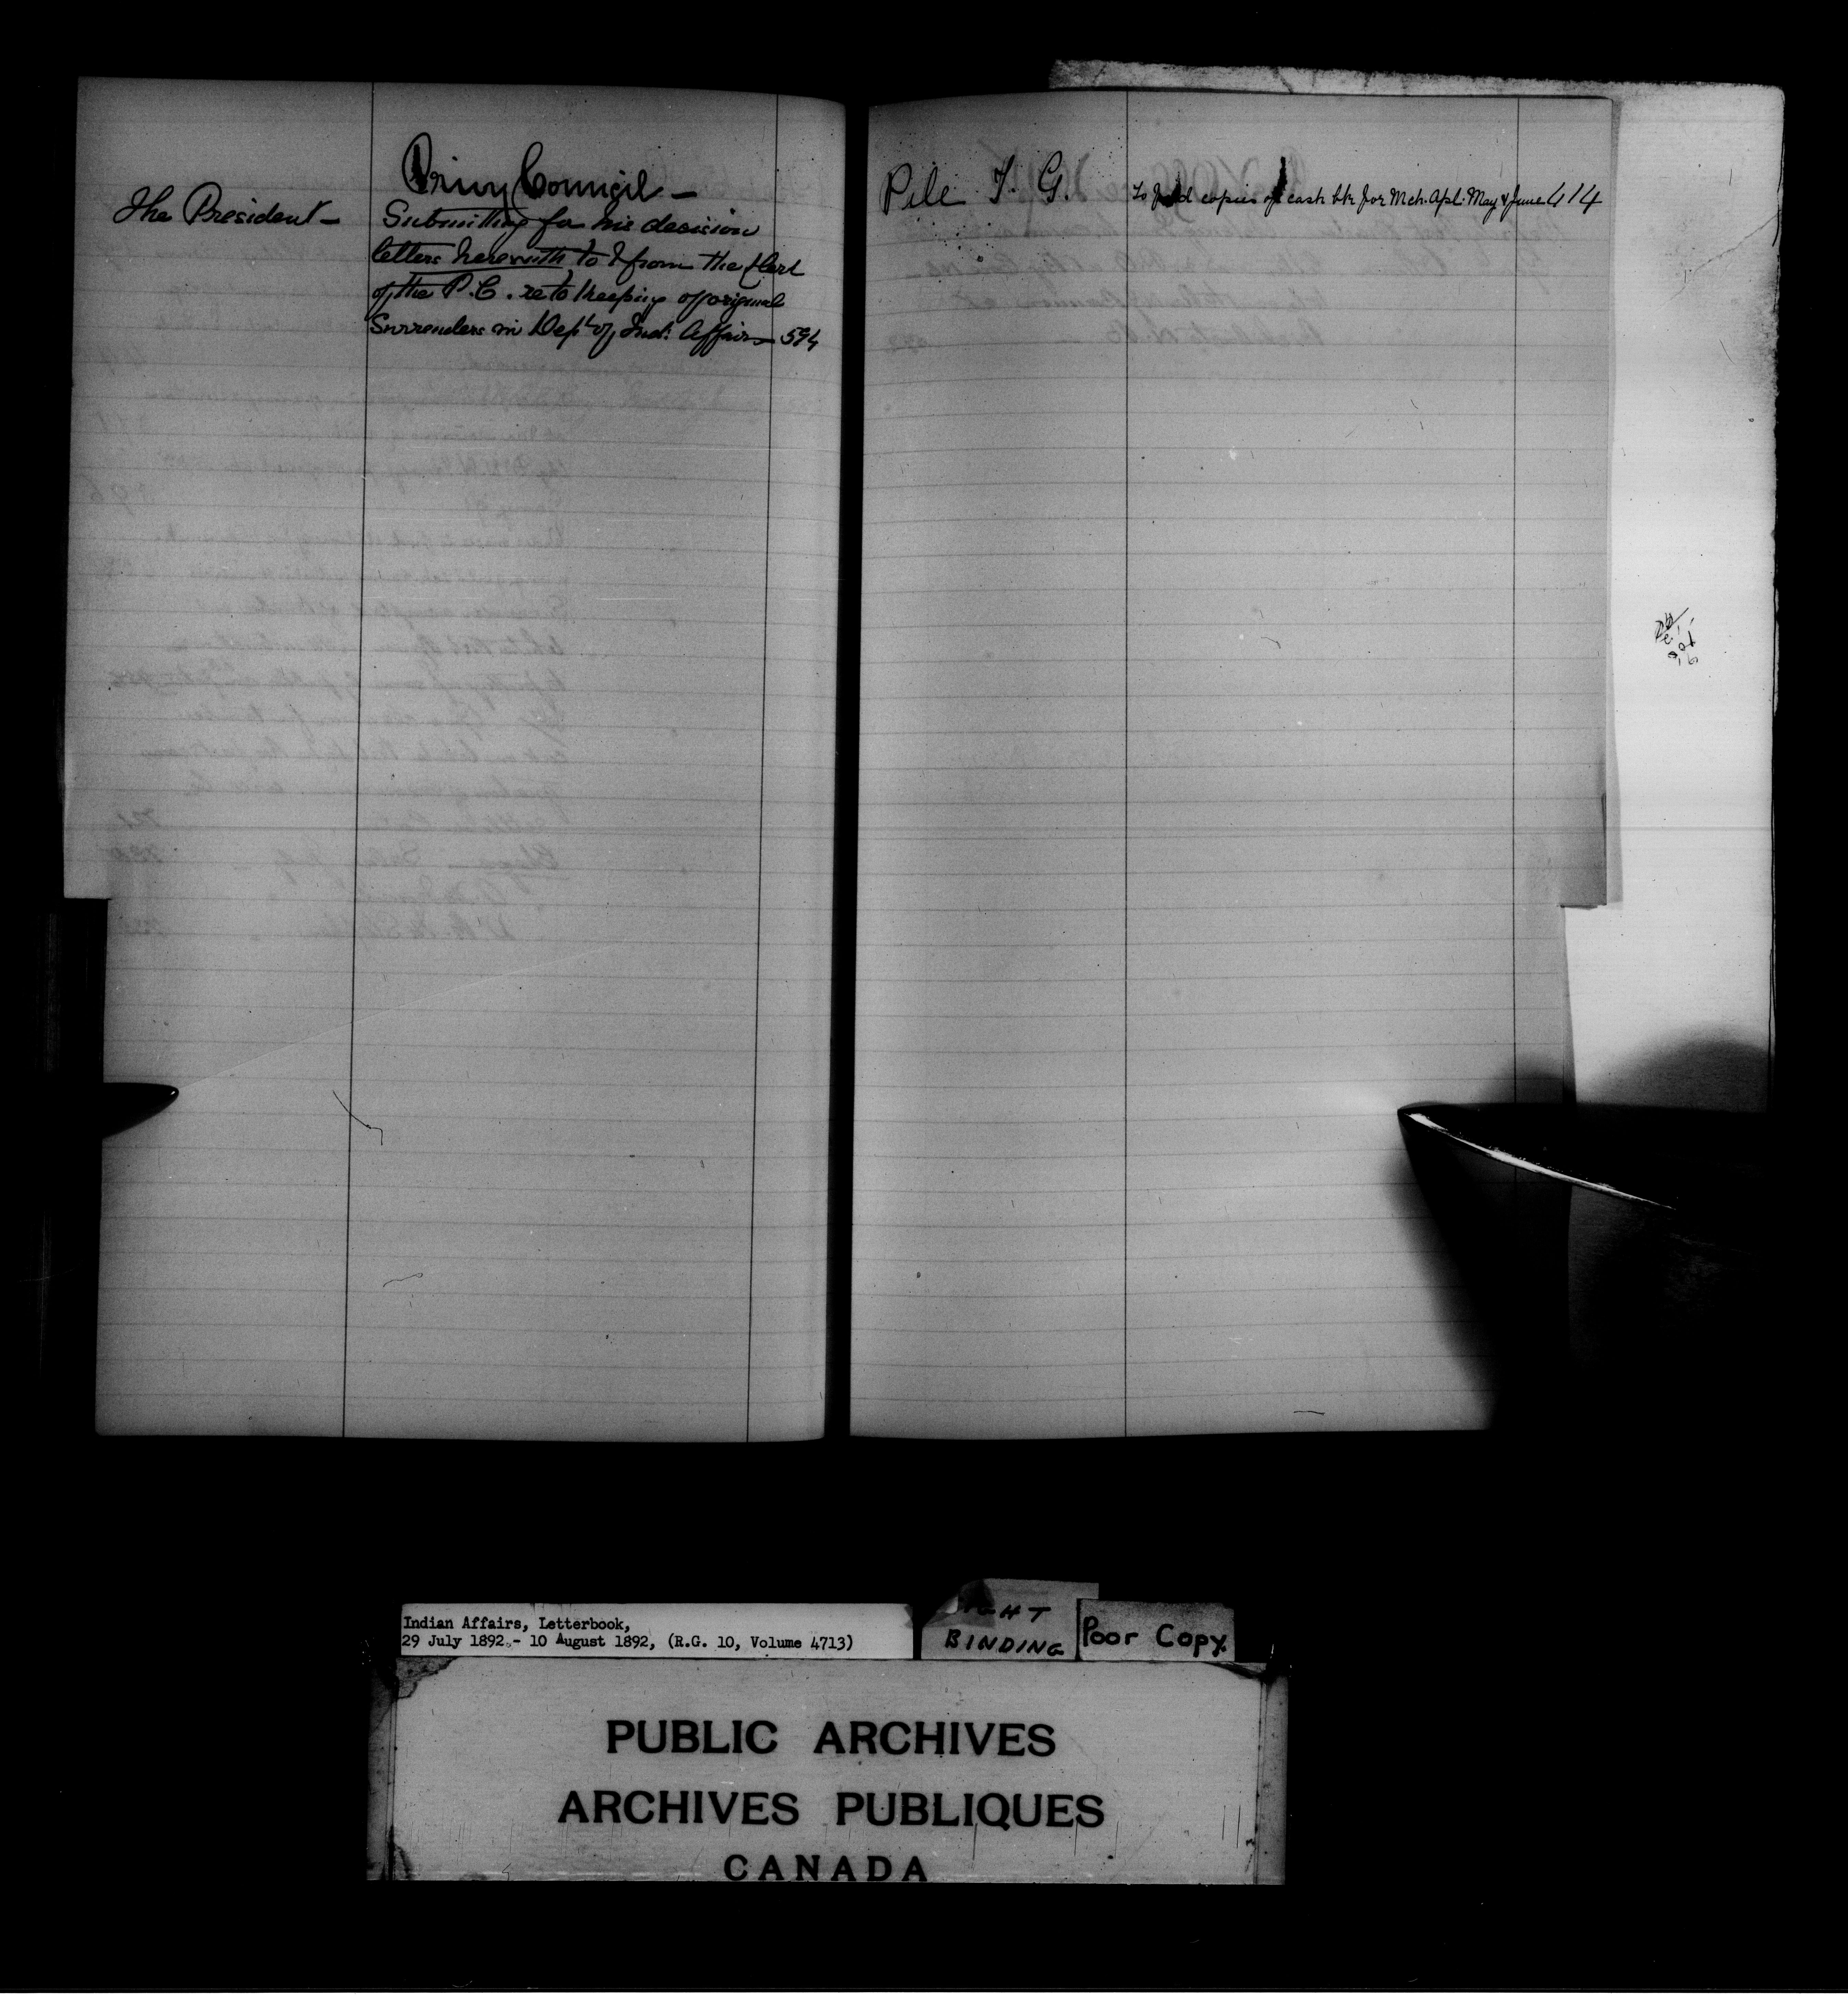 Privy Council —
The President —
Submitting for his decision
letters herewith to & from the Clerk
of the P.C. re to keeping of original
Surrenders in Dept of Ind: Affairs 594
Pile T. G. To copies of cash bk for Mch. Apl. May & June 414
Indian Affairs, Letterbook,
29 July 1892 - 10 August 1892, (R.G. 10, Volume 4713)
BINDING
Poor Copy.
PUBLIC ARCHIVES
ARCHIVES PUBLIQUES
CANADA